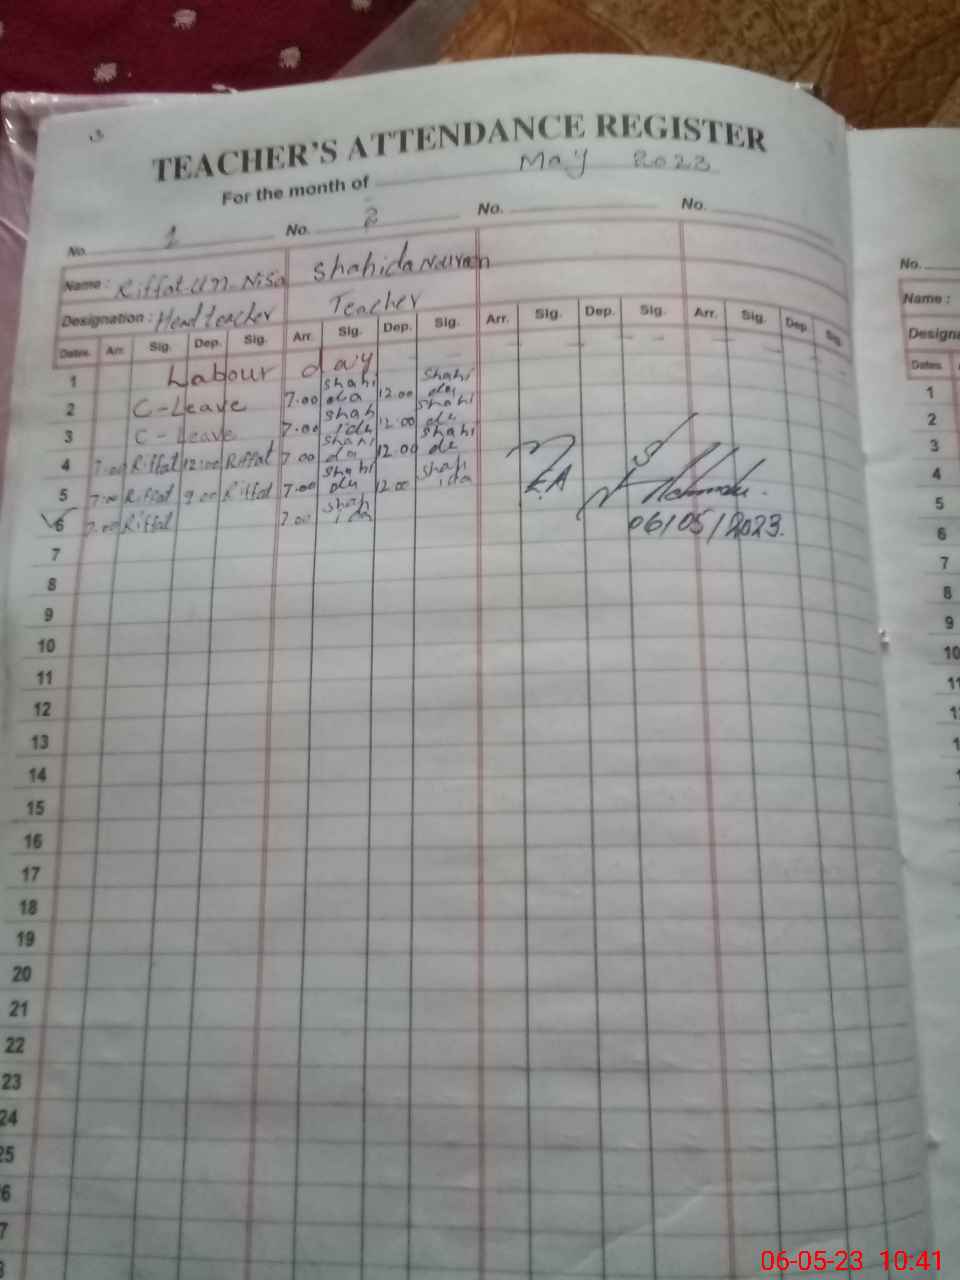 TEACHER'S ATTENDANCE REGISTER
For the month of May 2023
No. 1 No. 2 No. No.
Name : Riffat-un-Nisa Shahida
Designation : Headteacher Teacher
Dates. Arr. Sig. Dep. Sig. Arr. Sig. Dep. Sig. Arr. Sig. Dep. Sig. Arr. Sig. Dep. Sig.
1 Labour day
2 C-Leave 7.00 Shahida 12.00 Shahida
3 C-Leave 7.00 Shahida 12.00 Shahida
4 7:00 Riffat 12:00 Riffat 7.00 Shahida 12.00 Shahida
5 7:00 Riffat 9.00 Riffat 7.00 Shahida 12.00 Shahida
6 7:00 Riffat 7.00 Shahida
06/05/2023.
7
8
9
10
11
12
13
14
15
16
17
18
19
20
21
22
23
24
25
6
7
No.
Name :
Design
Dates
1
2
3
4
5
6
7
8
9
10
06-05-23 10:41